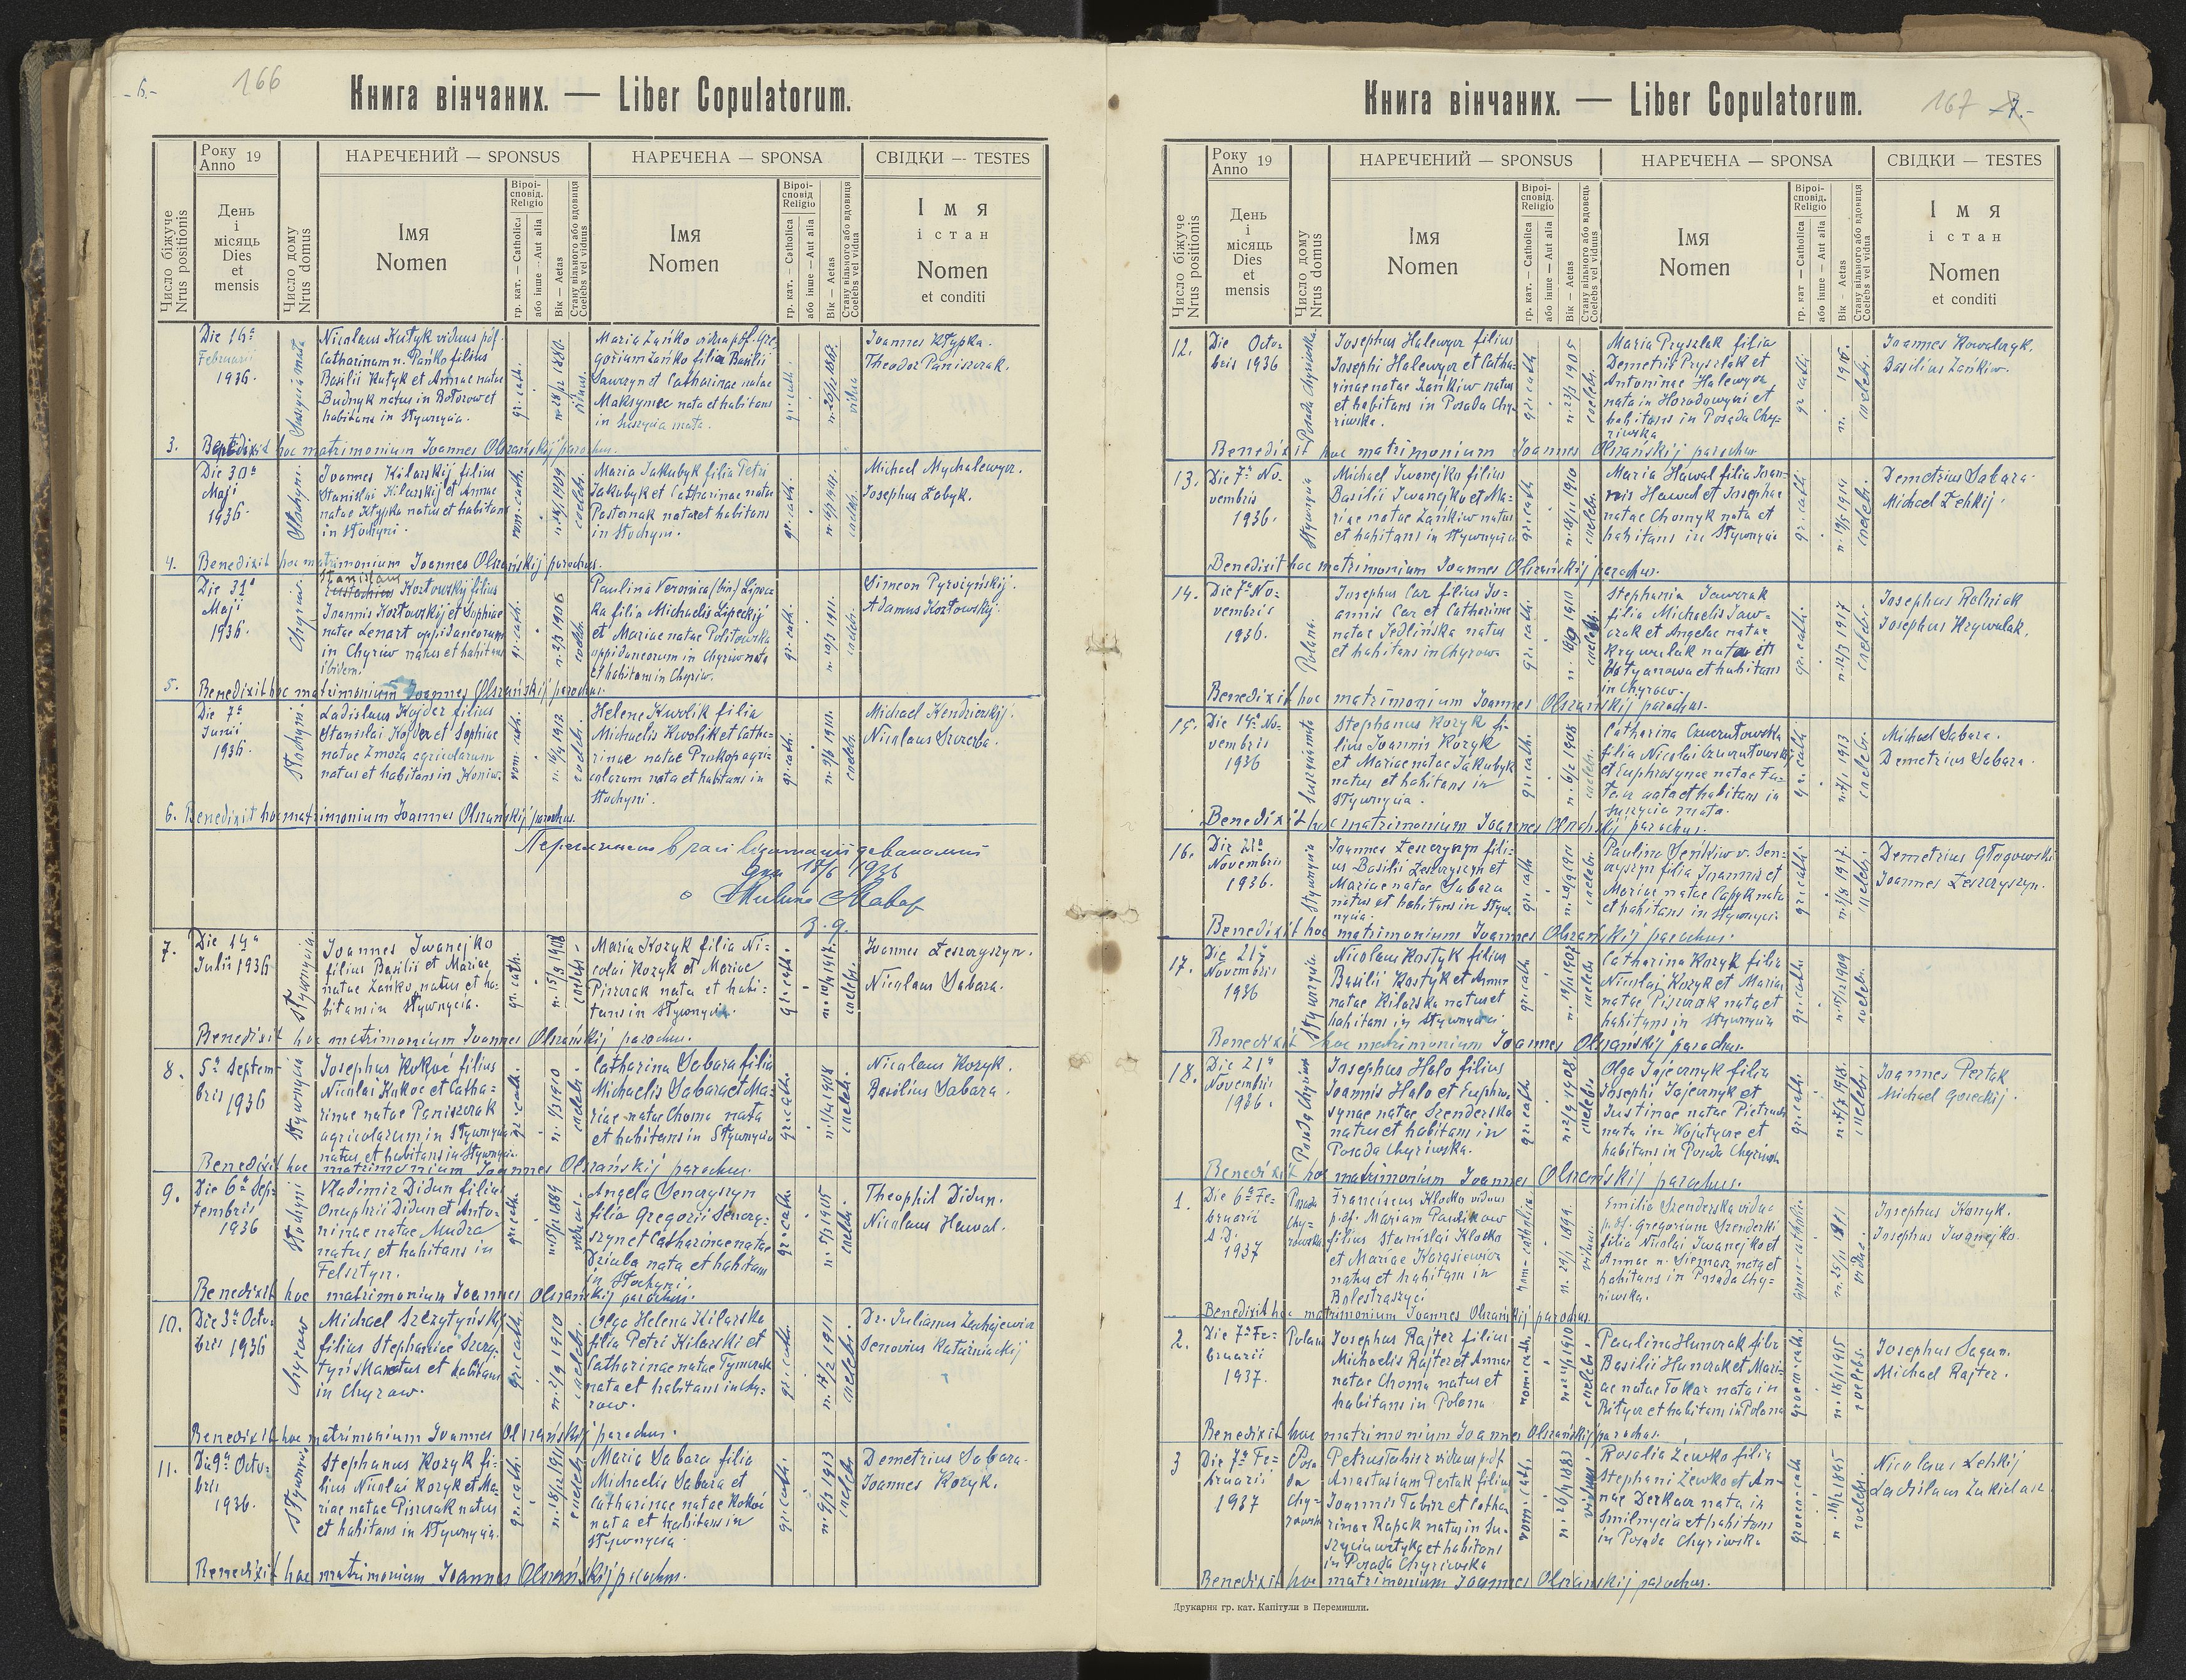 - 6.-
166
Книга вінчаних. — Liber Copulatorum.
Число біжуче
Nrus positionis
Року
Anno 19
День
і
місяць
Dies
et
mensis
Число дому
Nrus domus
НАРЕЧЕНИЙ — SPONSUS
Імя
Nomen
Віроі-
сповід.
Religio
гр. кат. — Catholica
або інше — Aut alia
Вік — Aetas
Стану вільного або вдовиця
Coelebs vel viduus
НАРЕЧЕНА — SPONSA
Імя
Nomen
Віроі-
сповід.
Religio
гр. кат. — Catholica
або інше — Aut alia
Вік — Aetas
Стану вільного або вдовиця
Coelebs vel vidua
СВІДКИ — TESTES
Імя
і стан
Nomen
et conditi
Die 16ª
Februarii
1936.
Suszycia mała
Nicolaus Kutyk viduus p̃of.
Catharinam n. Pańko filius
Basilii Kutyk et Annae natae
Budnyk natus in Bołozow et
habitans in Stywnycia.
gr. cath.
Maria Zańko vidua p̃of. Gre-
gorium Zańko filia Basilii
Sawczyn et Catharinae natae
Maksymec nata et habitans
in Suszycia mała.
gr. cath.
vidua
Joannes Kłypka.
Theodor Paniszczak.
3. Benedixit hoc matrimonium Joannes Olszańskij parochus.
Die 30ª
Maji
1936.
Słochyni.
Joannes Kilarskij filius
Stanislai Kilarskij et Annae
natae Kłypka natus et habitans
in Słochyni.
rom. cath.
coelebs.
Maria Jakubyk filia Petri
Jakubyk et Catharinae natae
Pasternak nata et habitans
in Słochyni.
gr. cath.
coelebs.
Michael Mychalewycz.
Josephus Łabyk.
4. Benedixit hoc matrimonium Joannes Olszańskij parochus.
Die 31ª
Maji
1936.
Chyriw.
Stanislaus
Eustachius Kozłowskij filius
Joannis Kozłowskij et Sophiae
natae Lenart oppidaneorum
in Chyriw natus et habitans
ibidem.
gr. cath.
n. 2/3 1906
coelebs.
Paulina Veronica (bin) Lipec-
ka filia Michaelis Lipeckij
et Mariae natae Politowska
oppidaneorum in Chyriw nata
et habitans in Chyriw.
gr. cath.
coelebs.
Simeon Pyrożyńskij.
Adamus Kozłowskij.
5. Benedixit hoc matrimonium Joannes Olszańskij parochus.
Die 7ª
Junii
1936.
Słochyni.
Ladislaus Kojder filius
Stanislai Kojder et Sophiae
natae Zmora agricolarum
natus et habitans in Koniw.
rom. cath.
coelebs.
Helene Kwolik filia
Michaelis Kwolik et Catha-
rinae natae Prokop agri-
colarum nata et habitans in
Słochyni.
gr. cath.
coelebs.
Michael Kendzierskij.
Nicolaus Szczerba.
6. Benedixit hoc matrimonium Joannes Olszańskij parochus.
дня 18/6 1936
7.
Die 14ª
Julii 1936
Stywnycia.
Joannes Iwanejko
filius Basilii et Mariae
natae Zańko natus et ha-
bitans in Stywnycia.
gr. cath.
n. 15/3 1908
coelebs.
Maria Kozyk filia Ni-
colai Kozyk et Mariae
Piszczak nata et habi-
tans in Stywnycia.
gr. cath.
coelebs.
Joannes Leszczyszyn.
Nicolaus Sabara.
Benedixit hoc matrimonium Joannes Olszańskij parochus.
8.
5ª Septem-
bris 1936
Stywnycia
Josephus Kokoć filius
Nicolai Kokoc et Catha-
rinae natae Paniszczak
agricolarum in Stywnycia
natus et habitans in Stywnycia.
gr. cath.
n. 1/3 1910
coelebs.
Catharina Sabara filia
Michaelis Sabara et Ma-
riae natae Choma nata
et habitans in Stywnycia
gr. cath.
coelebs.
Nicolaus Kozyk.
Basilius Sabara.
Benedixit hoc matrimonium Joannes Olszańskij parochus.
9.
Die 6ª Sep-
tembris
1936
Słochyni
Vladimir Didun filius
Onuphrii Didun et Anto-
ninae natae Mudra
natus et habitans in
Felsztyn.
gr. cath.
Angela Senczyszyn
filia Gregorii Senczy-
szyn et Catharinae natae
Dziuba nata et habitans
in Słochyni.
gr. cath.
n. 5/1 1915
coelebs.
Theophil Didun.
Nicolaus Hawal.
Benedixit hoc matrimonium Joannes Olszańskij parochus.
10.
Die 3ª Octo-
bris 1936
Chyrow
Michael Szczytyńskij
filius Stephaniae Szczy-
tyńska natus et habitans
in Chyrow.
gr. cath.
n. 2/9 1910
coelebs.
Olga Helena Kilarska
filia Petri Kilarski et
Catharinae natae Tymczak
nata et habitans in Chy-
row.
gr. cath.
n. 14/2 1911
coelebs.
Dr. Julianus Zachajewicz
Benedixit hoc matrimonium Joannes Olszańskij parochus.
11.
Die 9ª Octo-
bris
1936.
Stywnycia
Stephanus Kozyk fi-
lius Nicolai Kozyk et Ma-
riae natae Piszczak natus
et habitans in Stywnycia.
gr. cath.
n. 18/12 1911
coelebs.
Maria Sabara filia
Michaelis Sabara et
Catharinae natae Kokoć
nata et habitans in
Stywnycia
gr. cath.
n. 9/3 1913
coelebs.
Demetrius Sabara.
Joannes Kozyk.
Benedixit hoc matrimonium Joannes Olszańskij parochus.
Книга вінчаних. — Liber Copulatorum.
167
7.-
Число біжуче
Nrus positionis
Року
Anno 19
День
і
місяць
Dies
et
mensis
Число дому
Nrus domus
НАРЕЧЕНИЙ — SPONSUS
Імя
Nomen
Віроі-
сповід.
Religio
гр. кат. — Catholica
або інше — Aut alia
Вік — Aetas
Стану вільного або вдовець
Coelebs vel viduus
НАРЕЧЕНА — SPONSA
Імя
Nomen
Віроі-
сповід.
Religio
гр. кат — Catholica
або інше — Aut alia
Вік — Aetas
Стану вільного або вдовиця
Coelebs vel viduus
СВІДКИ — TESTES
Імя
і стан
Nomen
et conditi
12.
Die Octo-
bris 1936
Posada Chyriwska.
Josephus Halewycz filius
Josephi Halewycz et Catha-
rinae natae Zańkiw natus
et habitans in Posada Chy-
riwska.
gr. cath
n. 23/3 1905
coelebs.
Maria Pryszlak filia
Demetrii Pryszlak et
Antoninae Halewycz
nata in Horodowyczi et
habitans in Posada Chy-
riwska
gr. cath
coelebs.
Joannes Kowalczyk.
Basilius Zańkiw.
Benedixit hoc matrimonium Joannes Olszańskij parochus
13.
Die 7ª No-
vembris
1936.
Stywnycia
Michael Iwanejko filius
Basilii Iwanejko et Ma-
riae natae Zańkiw natus
et habitans in Stywnycia
gr. cath
n. 18/11 1910
coelebs.
Maria Hawal filia Joan-
nis Hawal et Josephae
natae Chomyk nata et
habitans in Stywnycia
gr. cath.
n. 19/5 1914
coelebs.
Demetrius Sabara.
Michael Lehkij.
Benedixit hoc matrimonium Joannes Olszańskij parochus.
14.
Die 7ª No-
vembris
1936.
Polana.
Josephus Car filius Jo-
annis Car et Catharinae
natae Jedlińska natus
et habitans in Chyrow.
gr. cath.
coelebs.
Stephania Jawczak
filia Michaelis Jaw-
czak et Angelae natae
Krywulak nata et
Batyanowa et habitans
in Chyrow.
gr. cath.
n. 12/3 1917
coelebs.
Josephus Rolniak
Josephus Krywulak.
Benedixit hoc matrimonium Joannes Olszańskij parochus.
15.
Die 14ª No-
vembris
1936
Suszycia mała
Stephanus Kozyk fi-
lius Joannis Kozyk
et Mariae natae Jakubyk
natus et habitans in
Stywnycia.
gr. cath.
n. 6/2 1908
coelebs.
Catharina Czwurtowska
filia Nicolai Czwurtowskij
et Euphrosynae natae Fu-
nata et habitans in
Suszycia mała.
gr. cath
n. 7/1 1913
coelebs.
Michael Sabara.
Demetrius Sabara.
Benedixit hoc matrimonium Joannes Olszańskij parochus.
16.
Die 21ª
Novembris
1936.
Stywnycia
Joannes Leszczyszyn fili-
us Basilii Leszczyszyn et
Mariae natae Sabara
natus et habitans in Styw-
nycia.
gr. cath.
coelebs.
Paulina Senkiw v. Sen-
czyszyn filia Joannis et
Mariae natae Capyk nata
et habitans in Stywnycia
gr. cath.
coelebs.
Demetrius Głogowski
Joannes Leszczyszyn.
Benedixit hoc matrimonium Joannes Olszańskij parochus.
17.
Die 21ª
Novembris
1936
Stywnycia.
Nicolaus Kostyk filius
Basilii Kostyk et Annae
natae Kilarska natus et
habitans in Stywnycia
gr. cath
n. 19/11 1907
coelebs
Catharina Kozyk filia
Nicolai Kozyk et Mariae
natae Piszczak nata et
habitans in Stywnycia
gr. cath.
coelebs.
Benedixit hoc matrimonium Joannes Olszańskij parochus.
18.
Die 21ª
Novembris
1936.
Posada Chyriws
Josephus Halo filius
Joannis Halo et Euphro-
synae natae Szenderska
natus et habitans in
Posada Chyriwska.
gr. cath
n. 2/9 1908.
coelebs.
Olga Jajecznyk filia
Josephi Jajecznyk et
Justinae natae Pietruch
nata in Wojutycze et
habitans in Posada Chyriwska
gr. cath.
n. 7/7 1918.
coelebs.
Joannes Pertak
Michael Goreckij.
Benedixit hoc matrimonium Joannes Olszańskij parochus.
1.
Die 6ª Fe-
bruarii
A.D.
1937
Posada
Chy-
rowska
Franciscus Klocko viduus
p. def. Mariam Pawlikow
filius Stanislai Klocko
et Mariae Karasiewicz
natus et habitans in
Bolestraszyci
rom-catholic.
n. 29/1 1899.
viduus.
Emilia Szenderska vidua
p. def. Gregorium Szenderski
filia Nicolai Iwanejko et
Annae n. Siemasz nata et
habitans in Posada Chy-
riwska.
n. 25/11 1911
vidua.
Josephus Konyk.
Josephus Iwanejko.
Benedixit hoc matrimonium Joannes Olszańskij parochus.
2.
Die 7ª Fe-
bruarii
1937.
Polana
Josephus Rajter filius
Michaelis Rajter et Annae
natae Choma natus et
habitans in Polana
rom. cath.
coelebs.
Paulina Hunczak filia
Basilii Hunczak et Mari-
ae natae Tokar nata in
Bilycz et habitans in Polana
n. 18/1 1915
coelebs.
Josephus Sagan.
Michael Rajter.
Benedixit hoc matrimonium Joannes Olszańskij parochus.
3
Die 7ª Fe-
bruarii
1937
Posa
da
Chy-
rowska
Petrus Tabisz viduus p. def.
Anastasiam Pertak filius
Joannis Tabisz et Catha-
rinae Rapak natus in Su-
szycia wełyka et habitans
in Posada Chyriwska
rom. cath.
viduus.
Rosalia Lewko filia
Stephani Lewko et An-
nae Derkacz nata in
Smilnycia et habitans
in Posada Chyriwska
coelebs.
Nicolaus Lehkij
Benedixit hoc matrimonium Joannes Olszańskij parochus.
Друкарня гр. кат. Капітули в Перемишли.